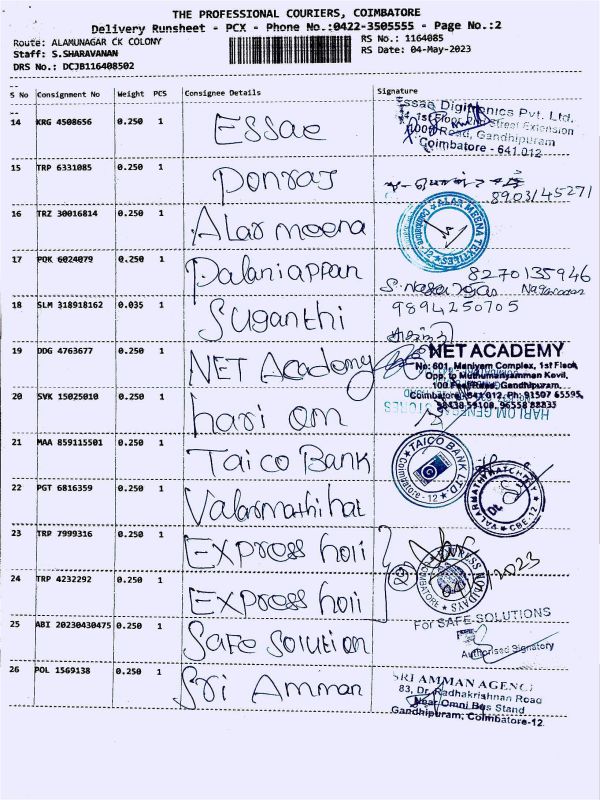 THE PROFESSIONAL COURIERS, COIMBATORE
Delivery Runsheet - PCX - Phone No.:0422-3505555 - Page No.:2
Route: ALAMUNAGAR CK COLONY RS No.: 1164085
Staff: S.SHARAVANAN RS Date: 04-May-2023
DRS No.: DCJB116408502
S No Consignment No Weight PCS Consignee Details Signature
14 KRG 4508656 0.250 1 Essae
Essae Digitronics Pvt. Ltd.
Road, Gandhipuram
Coimbatore - 641 012
15 TRP 6331085 0.250 1 Ponraj
8903145271
16 TRZ 30016814 0.250 1 Alar meena
ALAR MEENA TEXTILES
17 POK 6024079 0.250 1 Palaniappan
8270135946
18 SLM 318918162 0.035 1 Suganthi
9894250705
19 DDG 4763677 0.250 1 NET Academy
NET ACADEMY
No: 601, Maniyam Complex, 1st Floor,
Opp. to Muthumariyamman Kovil,
Gandhipuram,
Coimbatore - 641 012. Ph: 91507 65595,
98438 59108, 96558 88833
20 SVK 15025010 0.250 1 hari om
21 MAA 859115501 0.250 1 Taico Bank
TAICO BANK LTD
Coimbatore - 12
22 PGT 6816359 0.250 1 Valarmathi hat
CBE-12
23 TRP 7999316 0.250 1 Express holi
24 TRP 4232292 0.250 1 Express holi
25 ABI 20230430475 0.250 1 Safe Solution
For SAFE SOLUTIONS
Authorised Signatory
26 POL 1569138 0.250 1 Sri Amman
SRI AMMAN AGENCY
83, Dr. Radhakrishnan Road
Near Omni Bus Stand
Gandhipuram, Coimbatore-12.